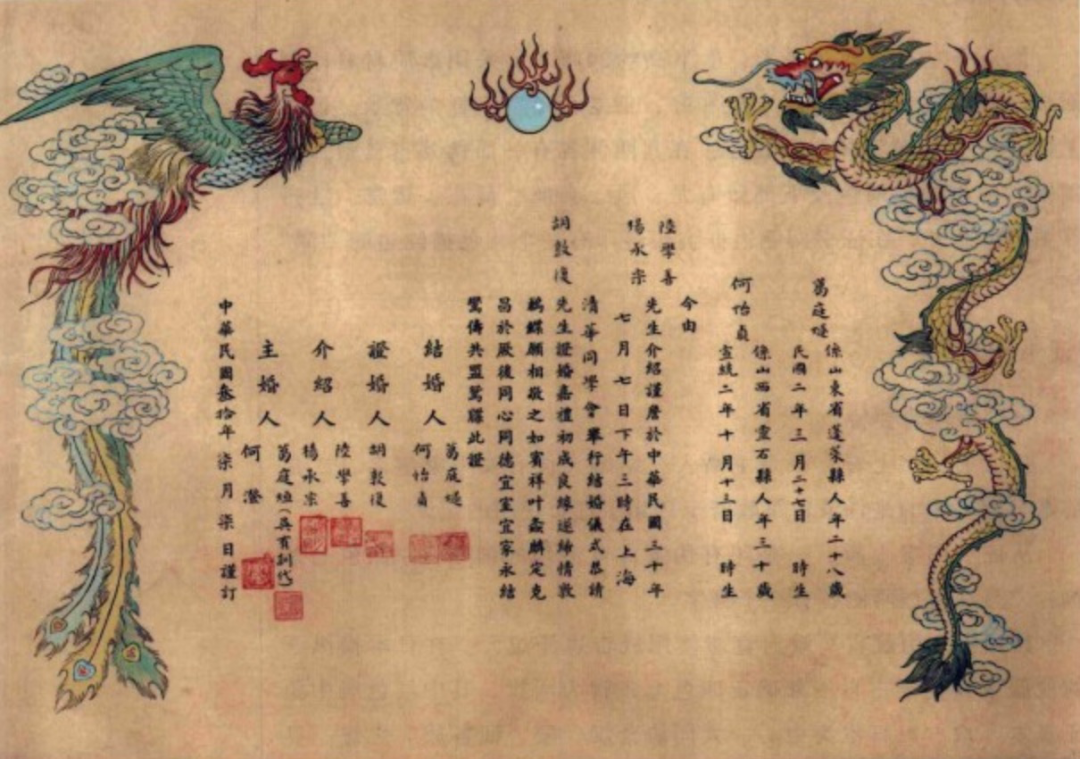 葛庭燧
係山東省蓬萊縣人年二十八歲
民國二年三月二十七日 時生
何怡貞
係山西省靈石縣人年三十歲
宣統二年十月十三日 時生
今由
陸學善
楊永宗
先生介紹謹詹於中華民國三十年
七月七日下午三時在上海
清華同學會舉行結婚儀式恭請
胡敦復先生證婚嘉禮初成良緣遂締情敦
鶼鰈願相敬之如賓祥叶螽麟定克
昌於厥後同心同德宜室宜家永結
鴛儔共盟鴛牒此證
結婚人
葛庭燧
何怡貞
證婚人
胡敦復
介紹人
陸學善
楊永宗
主婚人
葛庭(吳有訓代)
何澄
中華民國叁拾年柒月柒日謹訂